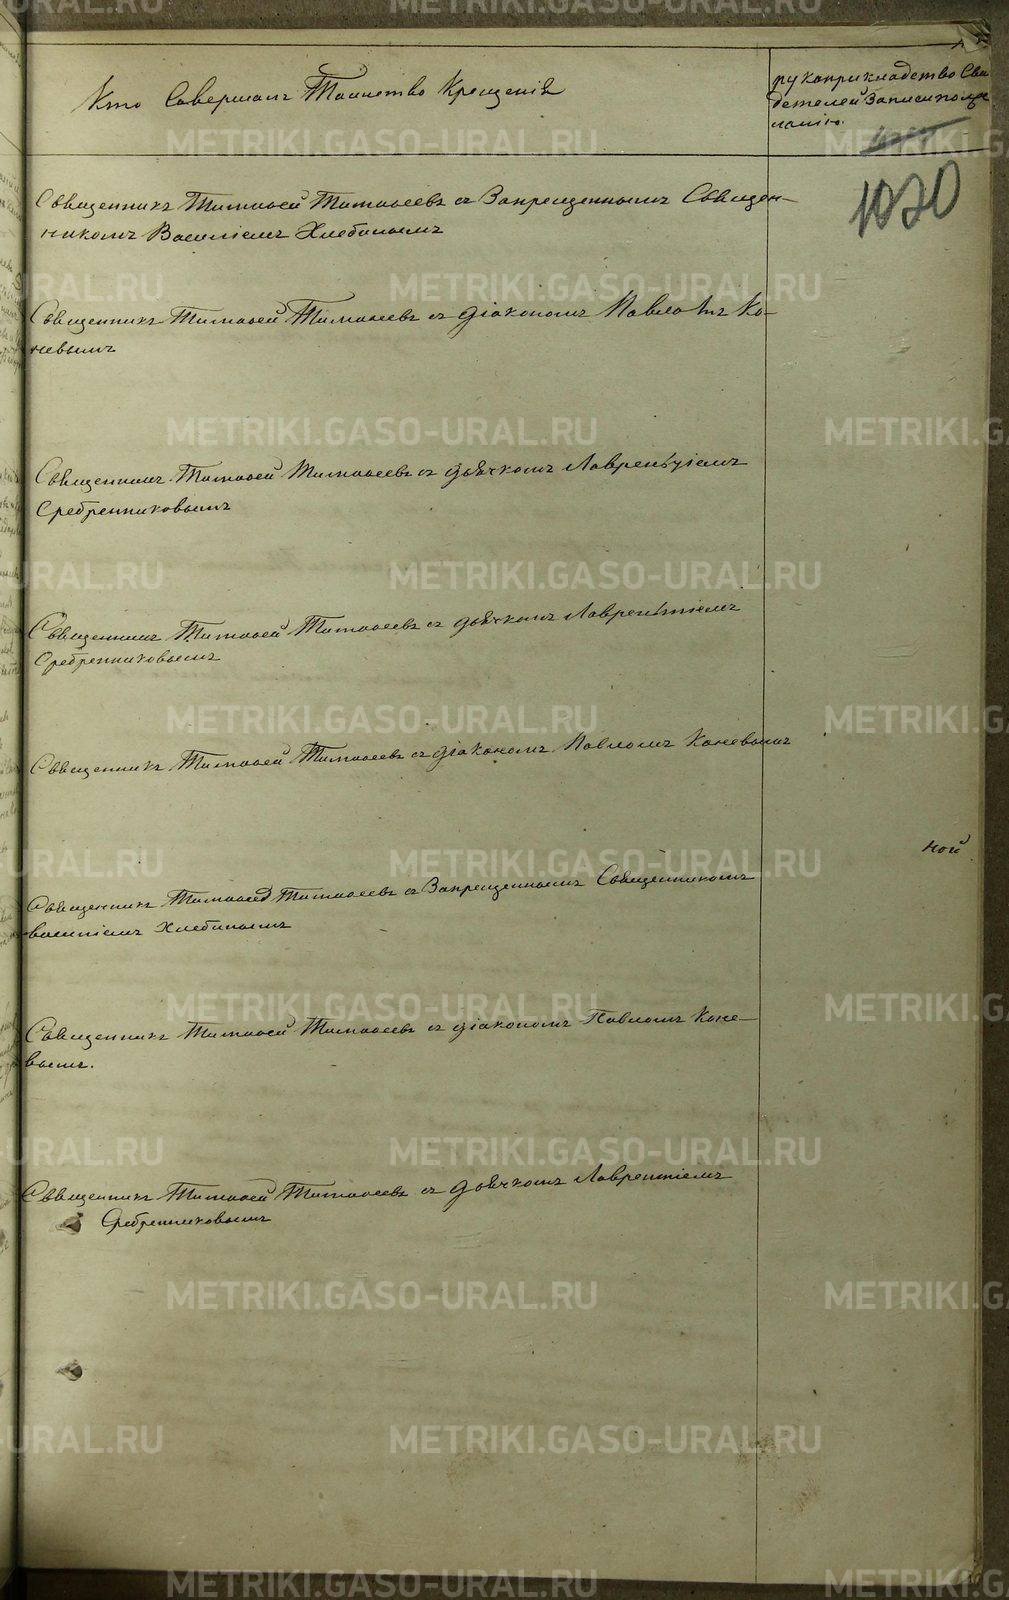 Кто Совершалъ Таинство Крещенія
рукоприкладство Сви
детелей Записи по же
ланію.
1020
Священникъ Тимофей Тимофеевъ съ Запрещеннымъ Священ-
никомъ Василіемъ Хлебинымъ
Священникъ Тимофей Тимофеевъ съ діакономъ Павломъ Ко-
невымъ
Священникъ Тимофей Тимофеевъ съ дьячкомъ Лаврентіемъ
Сребренниковымъ
Священникъ Тимофей Тимофеевъ съ дьячкомъ Лаврентіемъ
Сребренниковымъ
Священникъ Тимофей Тимофеевъ съ діакономъ Павломъ Коневымъ
ной
Священникъ Тимофей Тимофеевъ съ Запрещеннымъ Священникомъ
Василіемъ Хлебинымъ
Священникъ Тимофей Тимофеевъ съ діакономъ Павломъ Коне-
вымъ.
Священникъ Тимофей Тимофеевъ съ дьячкомъ Лаврентіемъ
Сребренниковымъ